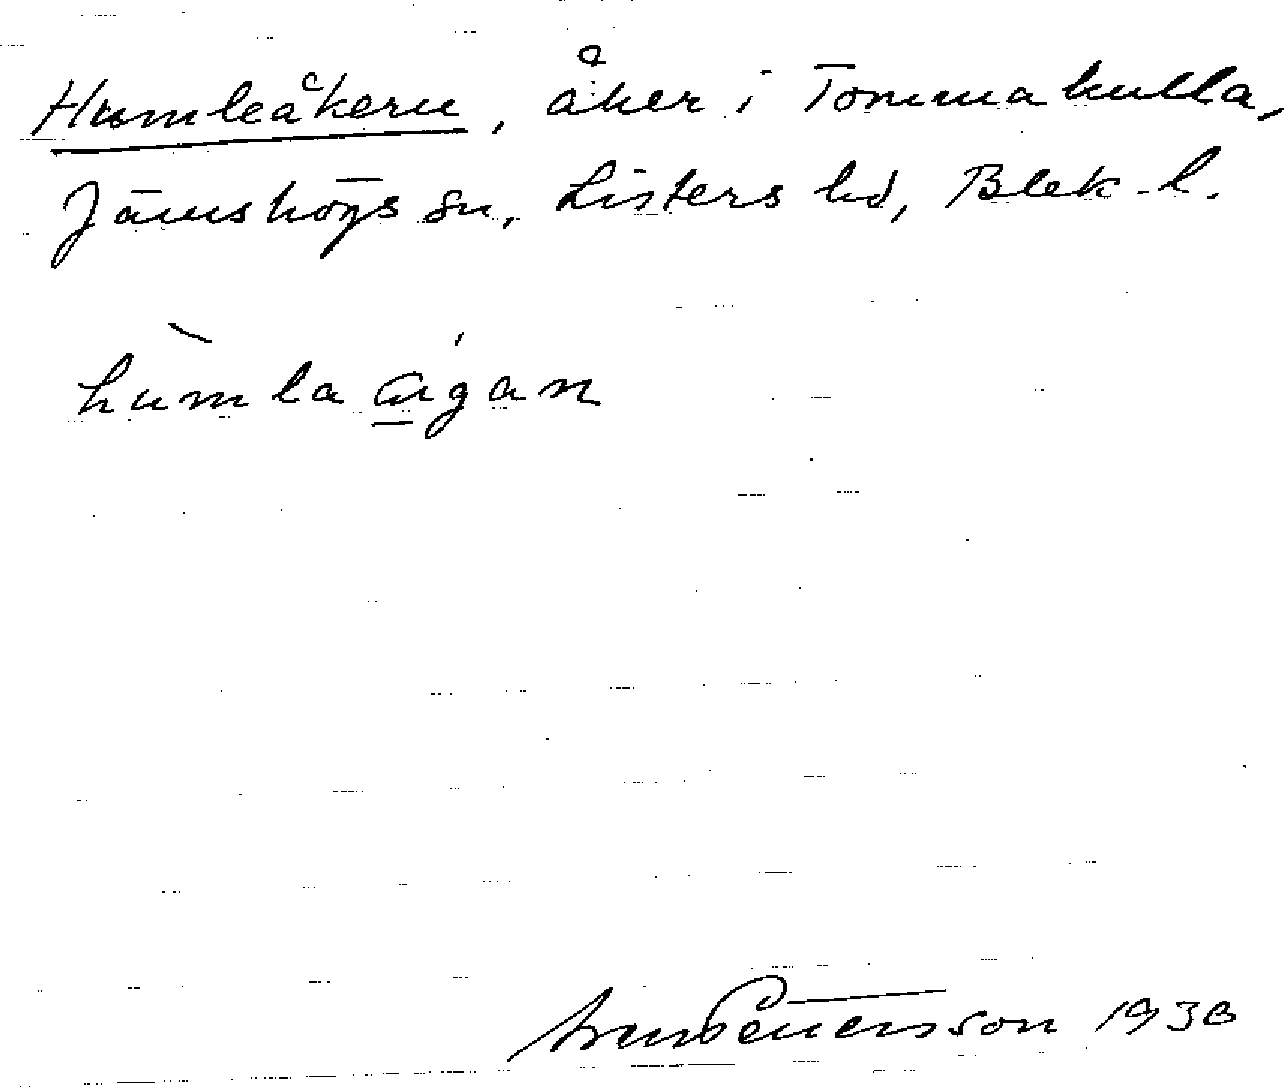 Humleåkern, åker i Tommakulla,
Jämshögs sn, Listers hd, Blek. l.
hùmla ágan
Pettersson 1930